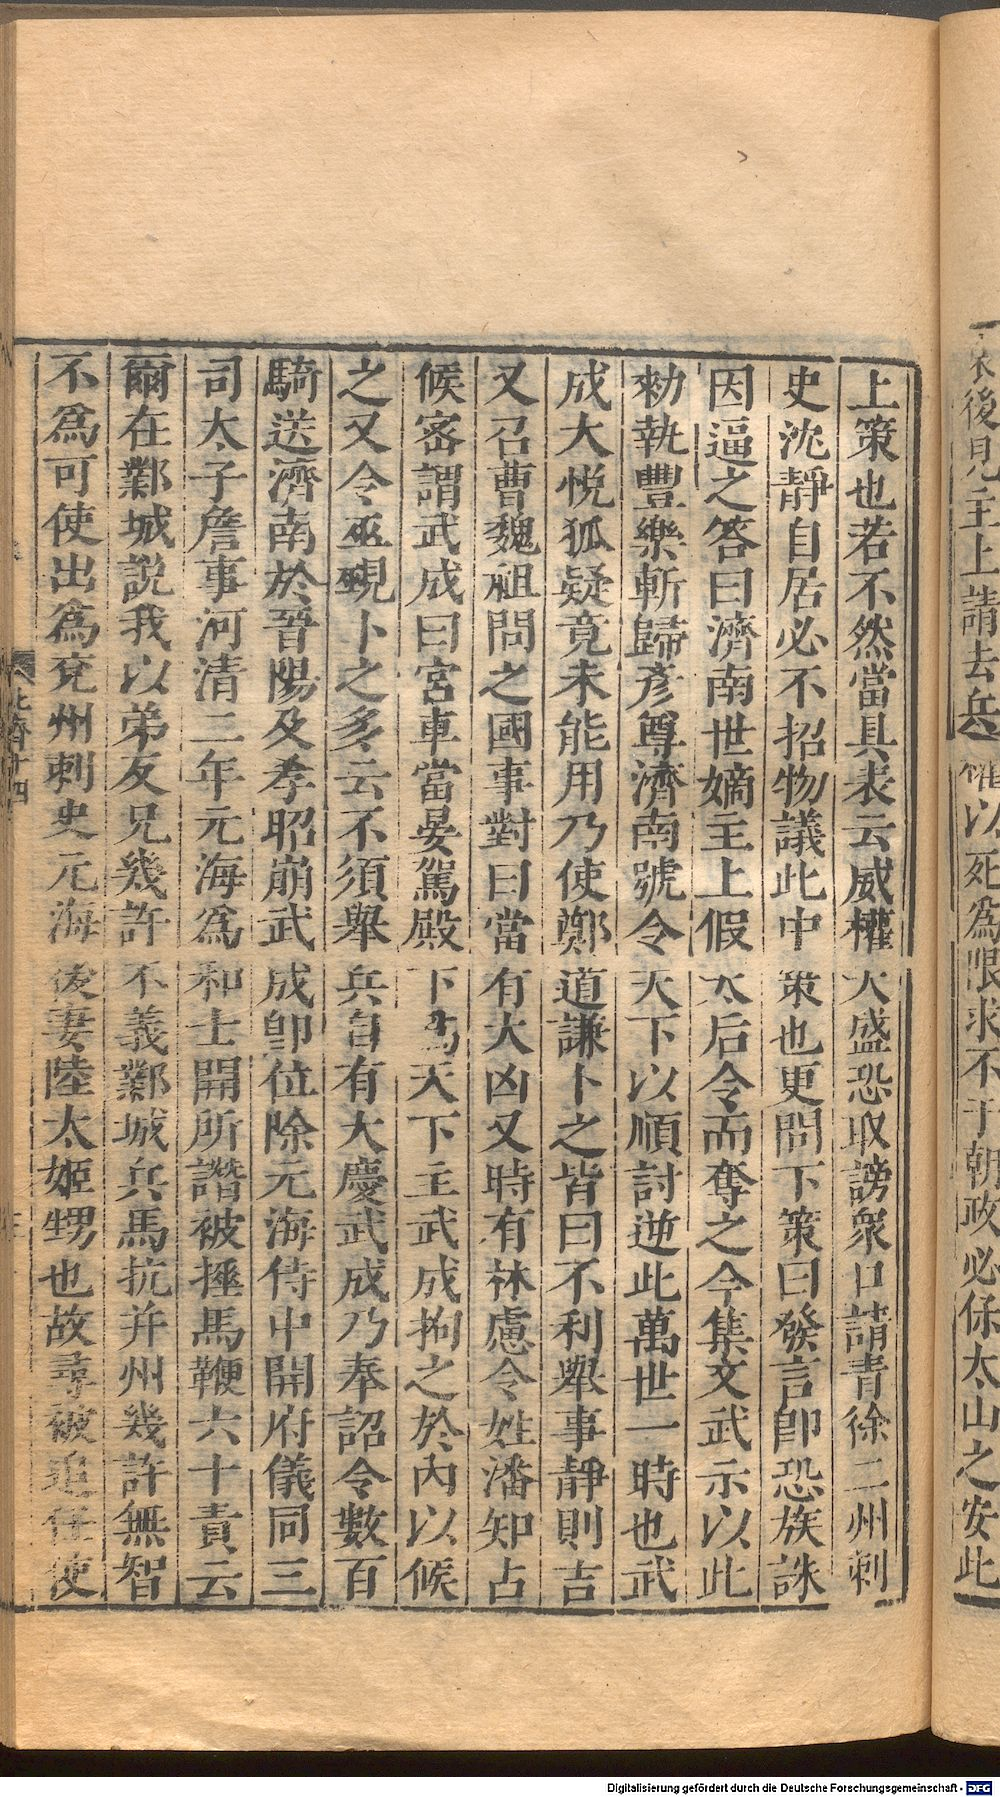 後見主上請去兵權以死爲限求不干朝政必保太山之安此
上策也若不然當具表云威權大盛恐取謗衆口請青徐二州刺
史沈靜自居必不招物議此中策也更問下策曰發言卽恐族誅
因逼之答曰濟南世嫡主上假太后令而奪之今集文武示以此
勑執豐樂斬歸彥尊濟南號令天下以順討逆此萬世一時也武
成大悅狐疑竟未能用乃使鄭道謙卜之皆曰不利舉事靜則吉
又召曹魏祖問之國事對曰當有大凶又時有林慮令姓潘知占
候密謂武成曰宮車當晏駕殿下爲天下主武成拘之於內以候
之又令巫覡卜之多云不須舉兵自有大慶武成乃奉詔令數百
騎送濟南於晉陽及孝昭崩武成卽位除元海侍中開府儀同三
司太子詹事河清二年元海爲和士開所譖被捶馬鞭六十責云
爾在鄴城說我以弟反兄幾許不義鄴城兵馬抗并州幾許無智
不爲可使出爲兗州刺史元海後妻陸太姬甥也故尋被追任使
北齊十四
Digitalisierung gefördert durch die Deutsche Forschungsgemeinschaft - DFG